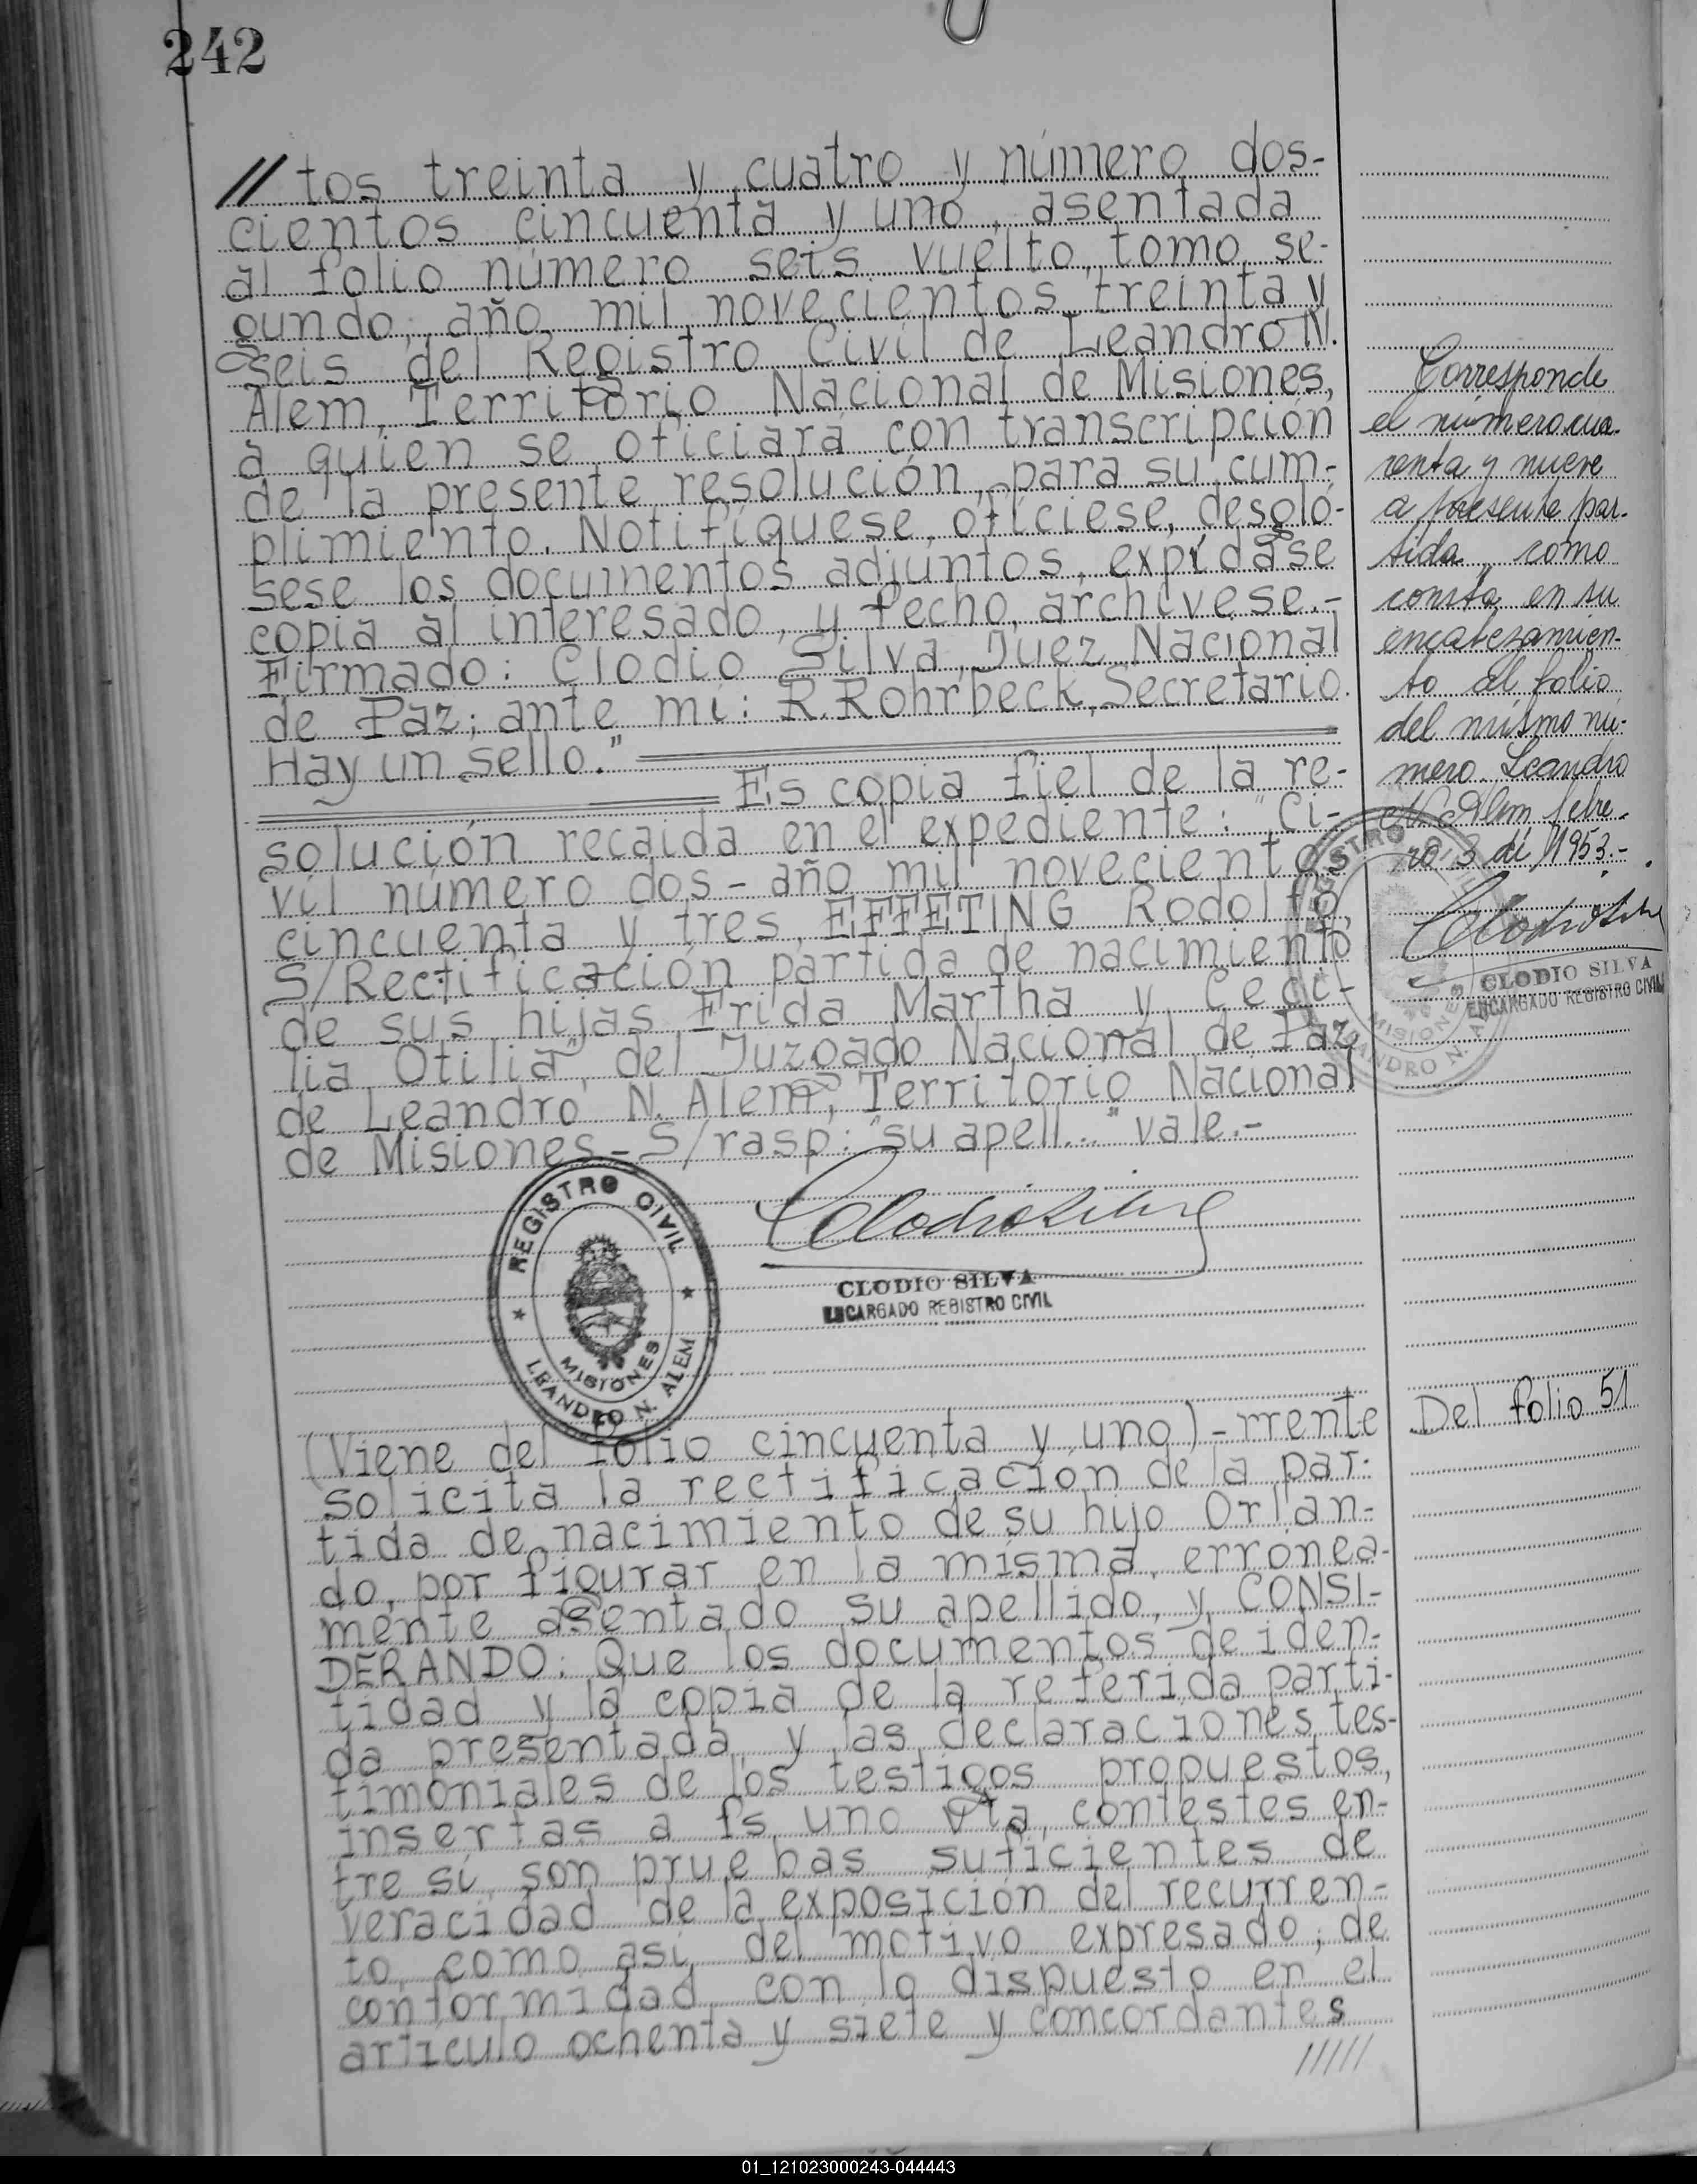 242
// tos treinta y cuatro y número dos-
cientos cincuenta y uno, asentada
al folio número seis vuelto, tomo se-
gundo, año mil novecientos treinta y
seis del Registro Civil de Leandro N.
Alem, Territorio Nacional de Misiones,
a quien se oficiará con transcripción
de la presente resolución, para su cum-
plimiento. Notifíquese, ofíciese, desgló-
sese los documentos adjuntos, expídase
copia al interesado, y fecho, archívese.-
Firmado: Clodio Silva, Juez Nacional
de Paz; ante mí: R. Rohrbeck, Secretario.
Hay un sello."
Es copia fiel de la re-
solución recaida en el expediente: "Ci-
vil número dos - año mil noveciento
cincuenta y tres, EFFETING Rodolfo,
S/Rectificación partida de nacimiento
de sus hijas Frida Martha y Ceci-
lia Otilia", del Juzgado Nacional de Paz
de Leandro N. Alem, Territorio Nacional
de Misiones.- S/rasp: "su apell..." vale.-
REGISTRO CIVIL
MISIONES
LEANDRO N. ALEM
Clodio Silva
CLODIO SILVA
ENCARGADO REGISTRO CIVIL
(Viene del folio cincuenta y uno) - rrente
solicita la rectificación de la par-
tida de nacimiento de su hijo Orlan-
do, por figurar en la misma, erronea-
mente asentado su apellido, y CONSI-
DERANDO: Que los documentos de iden-
tidad y la copia de la referida parti-
da presentada, y las declaraciones tes-
timoniales de los testigos propuestos,
insertas a fs. uno vta, contestes en-
tre sí, son pruebas suficientes de
veracidad de la exposición del recurren-
te, como así, del motivo expresado; de
conformidad con lo dispuesto en el
artículo ochenta y siete y concordantes
/////
Corresponde
el número cua-
renta y nueve
a presente par-
tida, como
consta en su
encabezamien-
to al folio
del mismo nú-
mero. Leandro
N. Alem febre-
ro 3 de 1953.-
Clodio Silva
CLODIO SILVA
ENCARGADO REGISTRO CIVIL
GISTRO
MISIONES
ANDRO N. A
Del folio 51
01_121023000243-044443